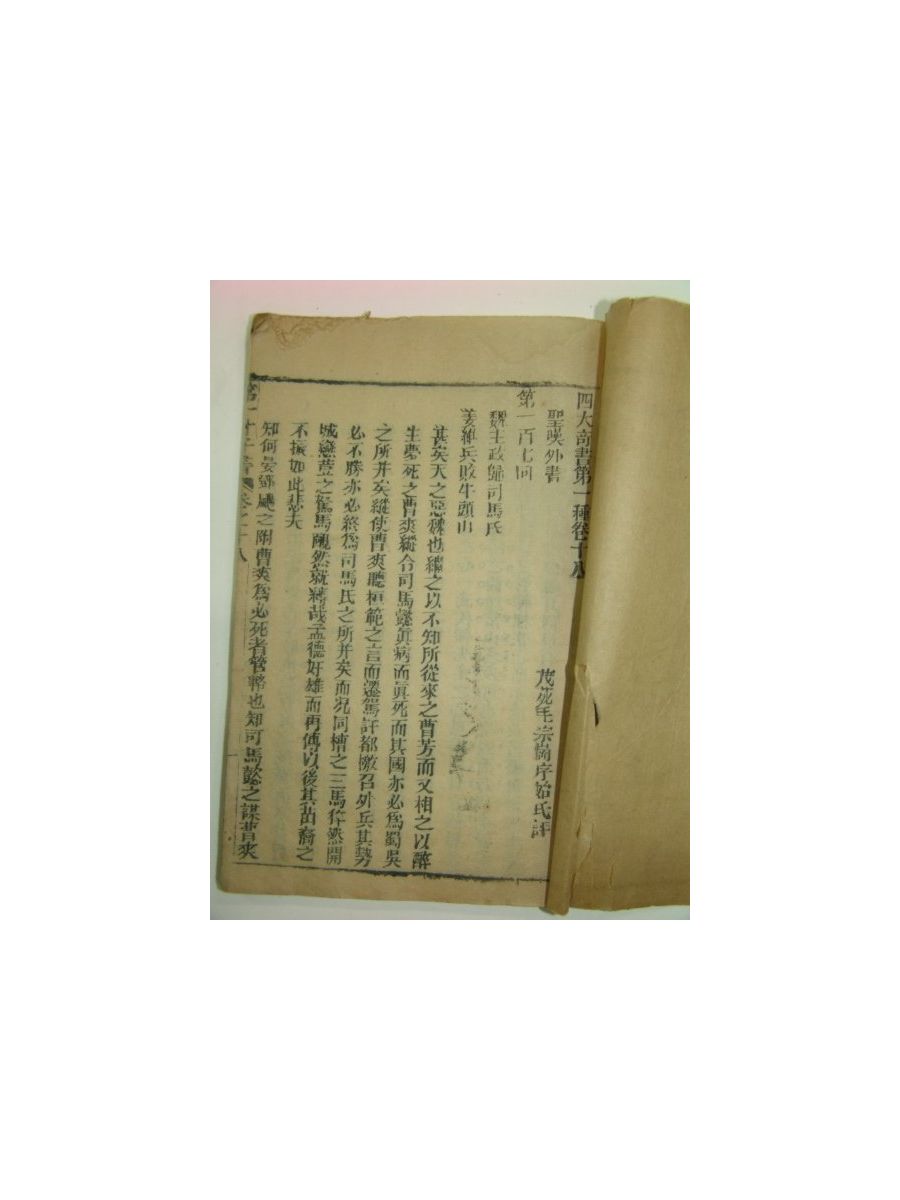 四大奇書第一種卷十八
聖嘆外書
茂苑毛宗崗序始氏評
第一百七回
魏主政歸司馬氏
姜維兵敗牛頭山
甚矣天之惡魏也繼之以不知所從來之曹芳而又相之以醉
生夢死之曹爽縱令司馬懿眞病而眞死而其國亦必爲蜀吳
之所并矣縱使曹爽聽桓範之言而遷駕許都檄召外兵其勢
必不勝亦必終爲司馬氏之所并矣而况同槽之三馬倅然開
城戀荳之駑馬靦然就縛哉孟德奸雄而再傳以後其苗裔之
不振如此悲夫
知何晏鄧颺之附曹爽爲必死者管輅也知司馬懿之謀曹爽
第一才子書 卷之十八